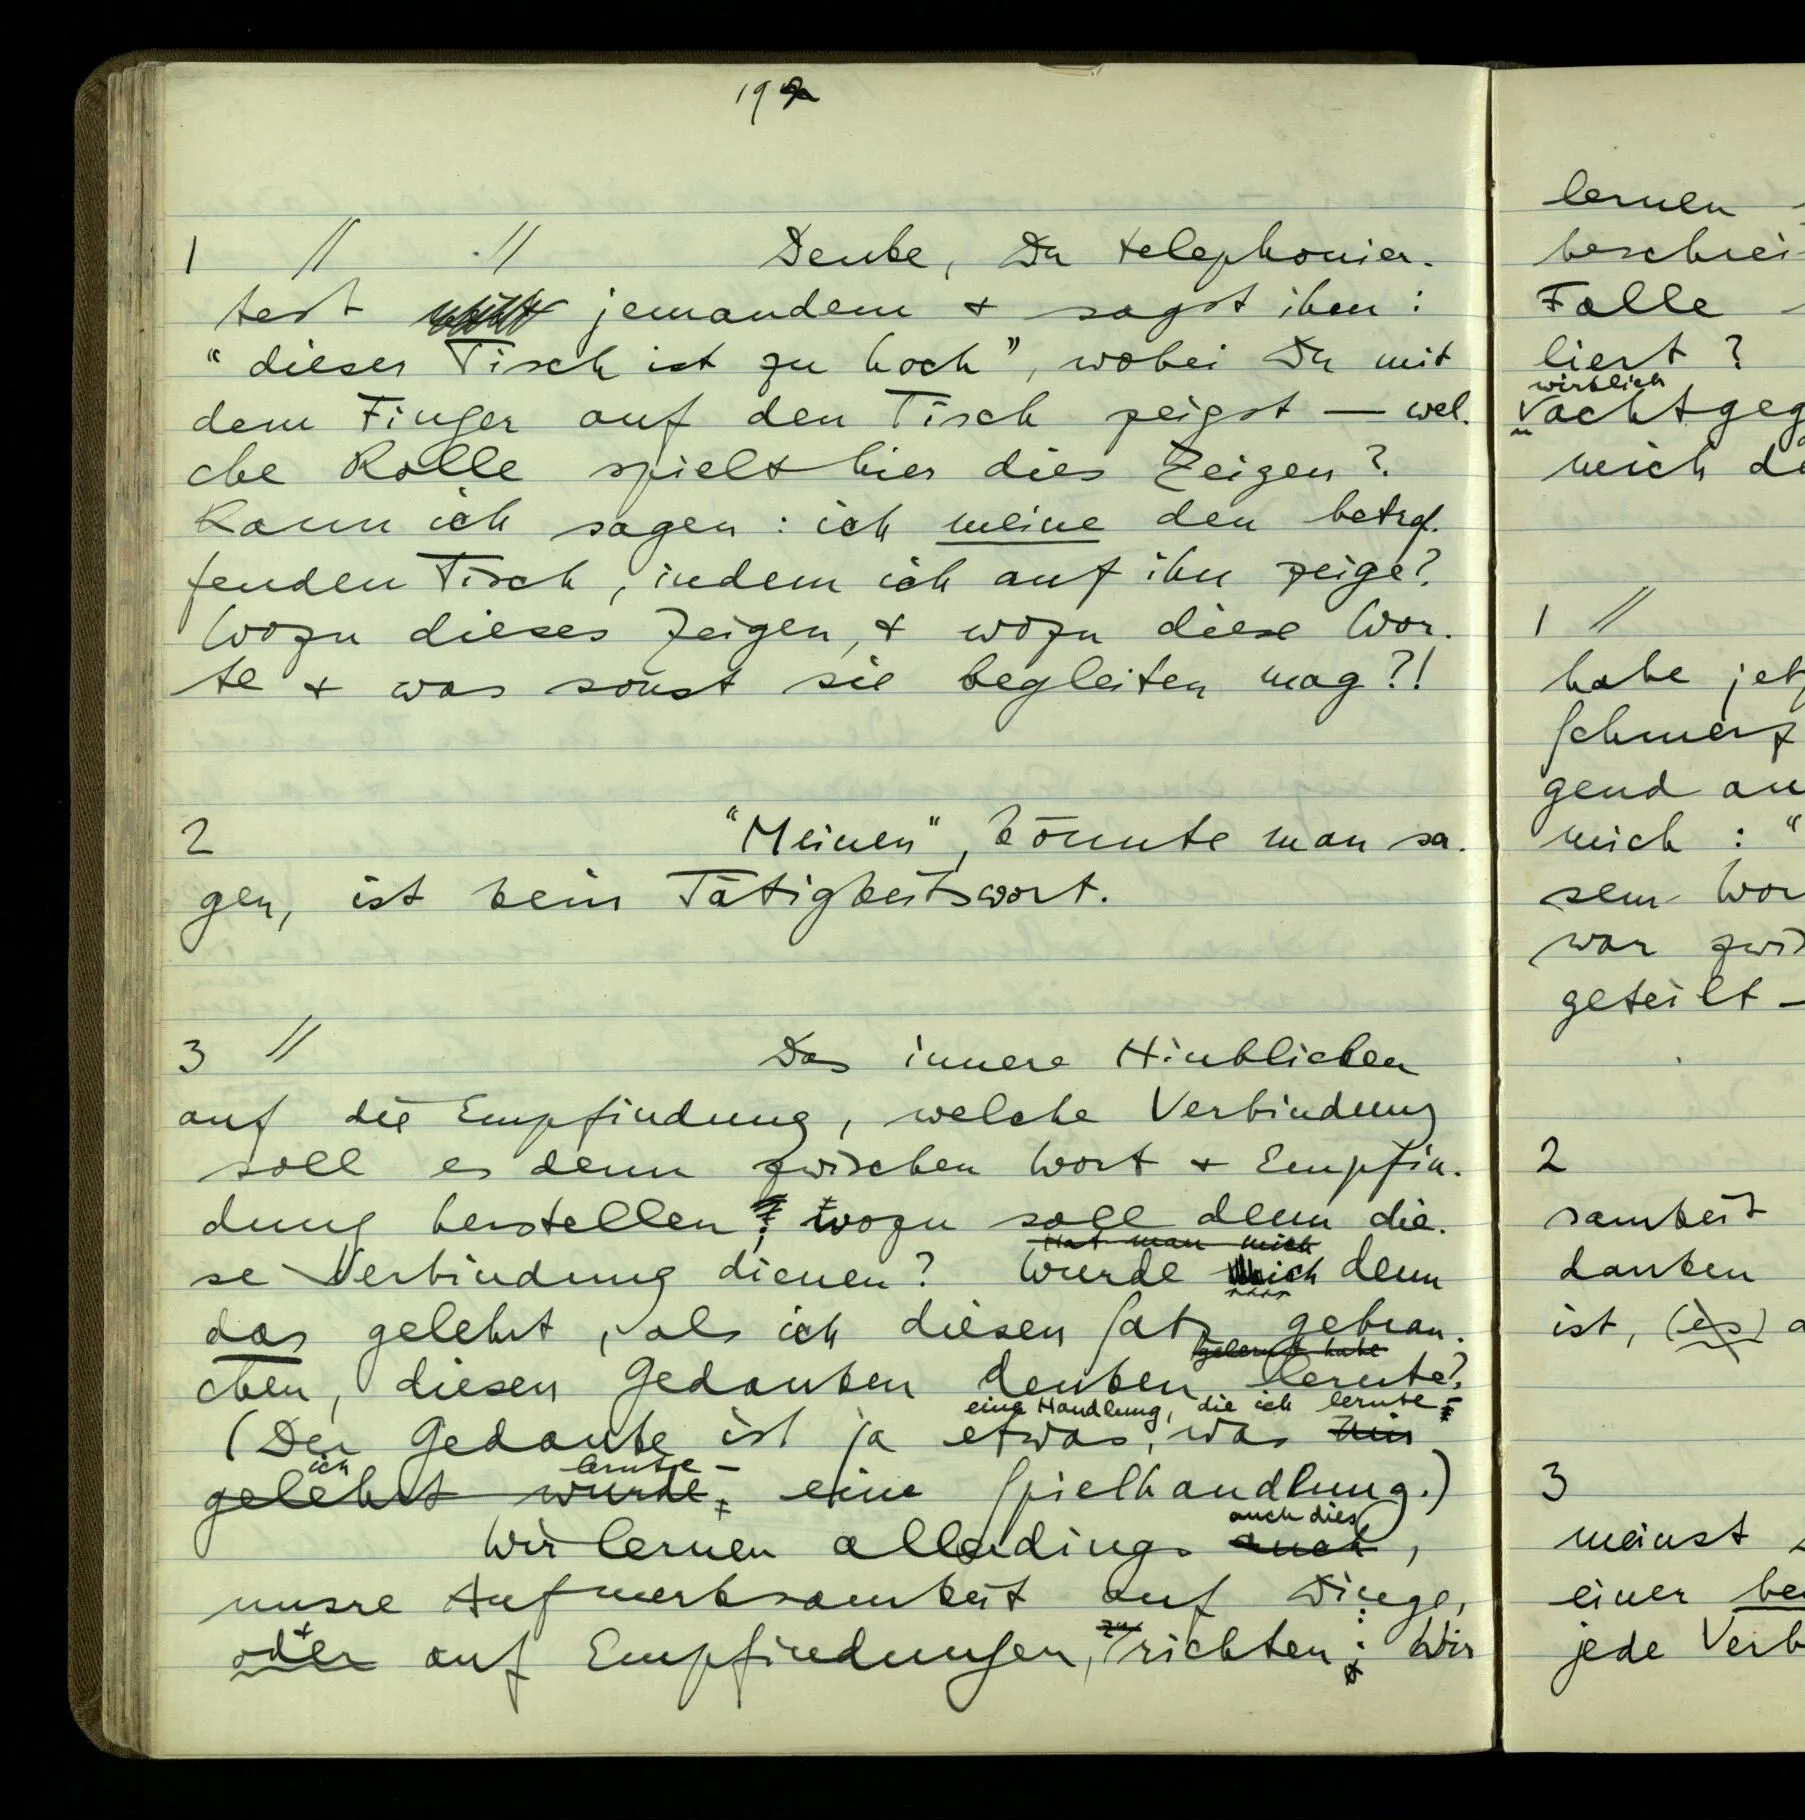 192
1 // .// Denke, Du telephonier-
test jemandem & sagst ihm :
“dieser Tisch ist zu hoch”, wobei Du mit
dem Finger auf den Tisch zeigst — wel-
che Rolle spielt hier dies Zeigen?
Kann ich sagen : ich meine den betref-
fenden Tisch, indem ich auf ihn zeige?
Wozu dieses Zeigen, & wozu diese Wor-
te & was sonst sie begleiten mag?!
2 “Meinen”, könnte man sa-
gen, ist kein Tätigkeitswort.
3 // Das innere Hinblicken
auf die Empfindung, welche Verbindung
soll es denn zwischen Wort & Empfin-
dung herstellen? Wozu soll denn die-
Hat man mich
se Verbindung dienen? Wurde ich denn
das gelehrt, als ich diesen Satz gebrau-
gelernt habe
chen, diesen Gedanken denken lernte?
eine Handlung, die ich lernte
(Der Gedanke ist ja etwas, was mir
ich lernte –
gelehrt wurde, eine Spielhandlung.)
auch dies
Wir lernen allerdings auch,
unsre Aufmerksamkeit auf Dinge,
&
oder auf Empfindungen, zu richten: Wir
lernen
beschrei
Falle
liert?
wirklich
achtgeg
mich de
1 //
habe jetz
Schmerz
gend an
mich : “
sem Wor
war zwis
geteilt –
2
samkeit
danken
ist, (es) a
3
meinst
einer be
jede Verb